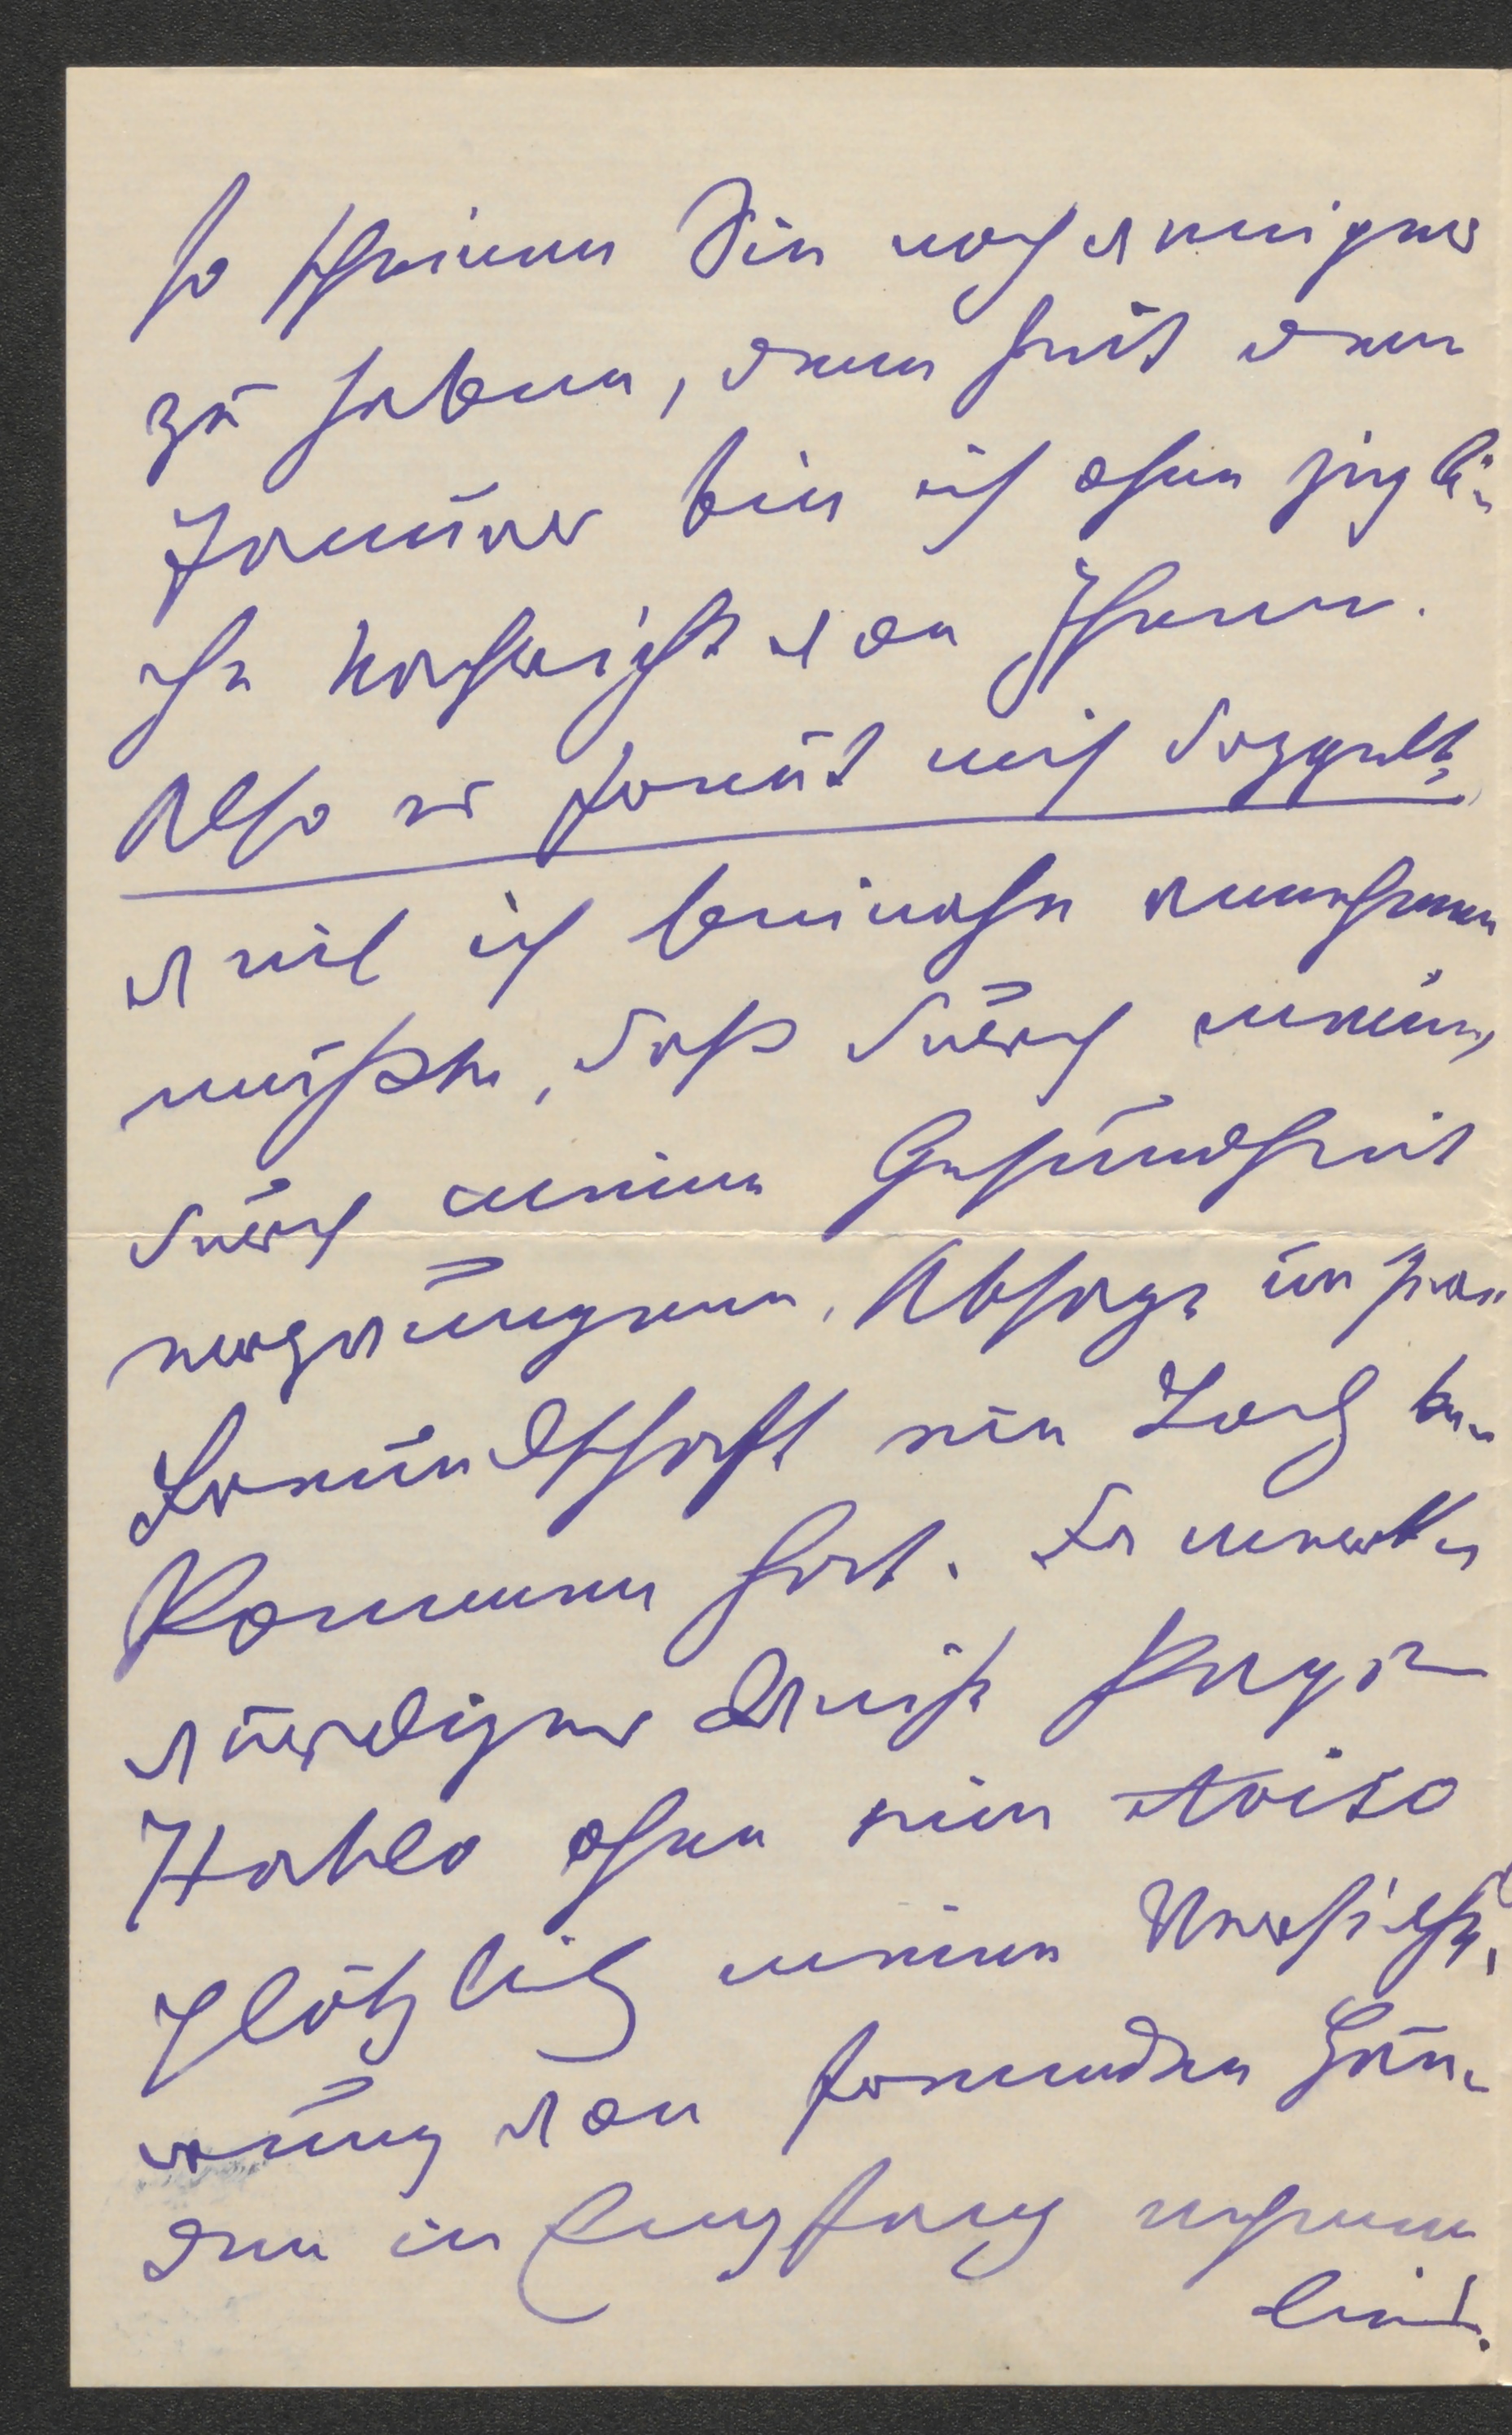 so scheinen Sie noch weniger
zu haben, denn seit dem
Januar bin ich ohne jegli-
che Nachricht von Ihnen.
Also es freut mich doppelt,
weil ich beinahe annehmen
musste, dass durch meine,
durch meine Gesundheit
erzwungene, Absage unsere
Freundschaft ein Loch be-
kommen hat. Ja merk-
würdiger Weise
ohne ein Aviso
plötzlich meine
von fremden Hän-
den in Empfang nehmen